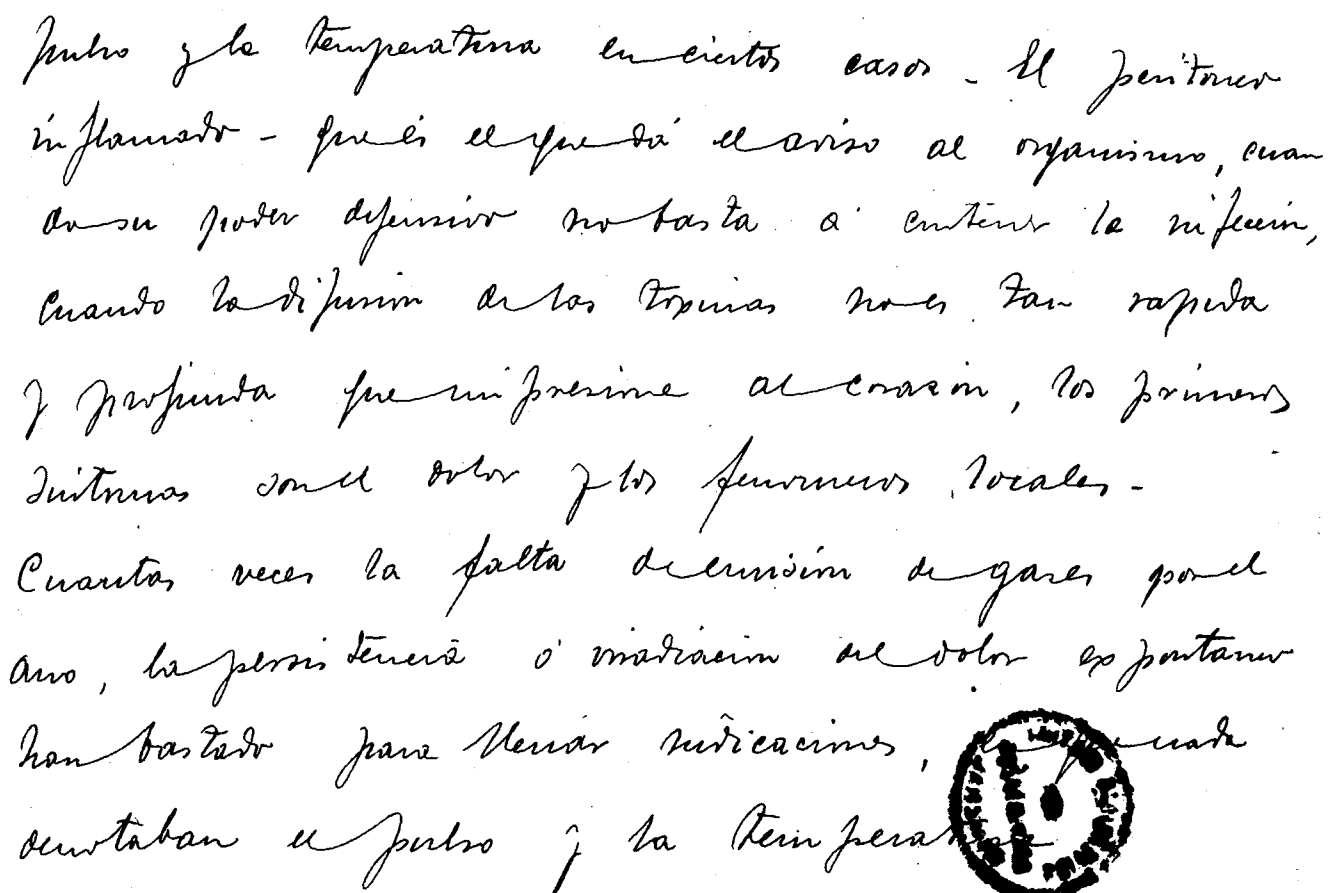 pulso y la temperatura en ciertos casos - El peritoneo
inflamado - que és el que dá el aviso al organismo, cuan
do su poder defensivo no basta á contener la infección,
cuando la difusión de las toxinas no es tan rapida
y profunda que impresione al corazón, los primeros
sintomas son el dolor y los fenomenos locales -
Cuantas veces la falta de emisión de gases por el
ano, la persistencia ó irradiacion del dolor expontaneo
han bastado para llenar indicaciones, nada
denotaban el pulso y la temperatura